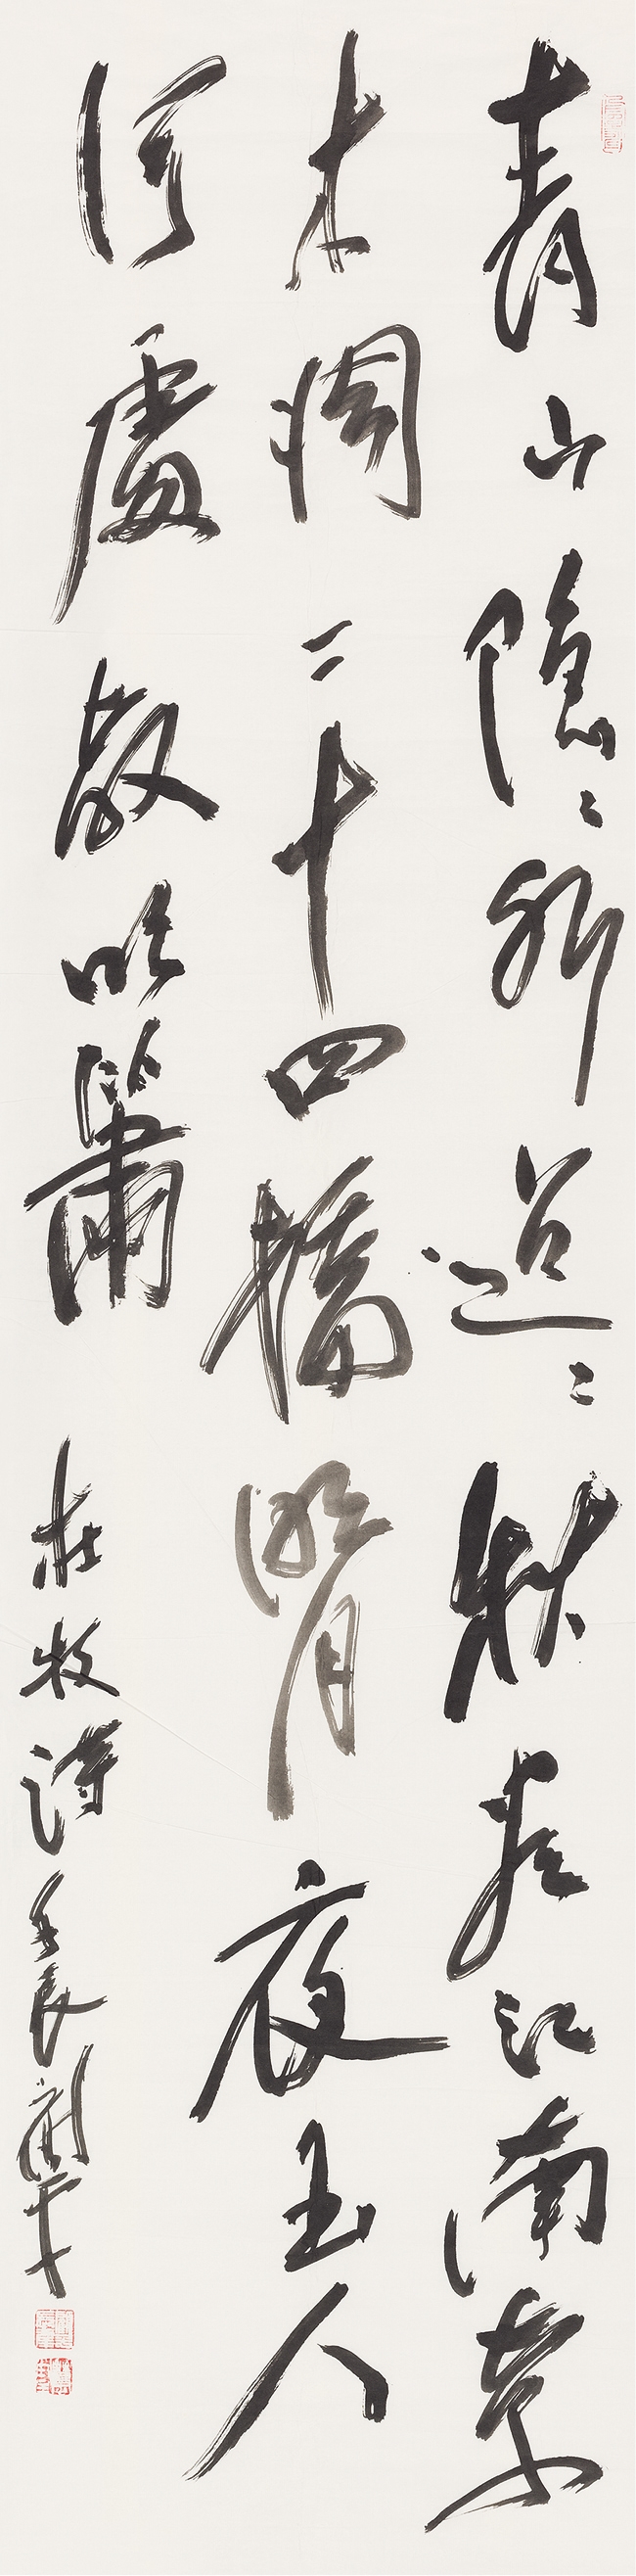 青山隱〻水迢〻秋盡江南草
未凋二十四橋明月夜玉人
何處教吹簫 杜牧詩 壬辰